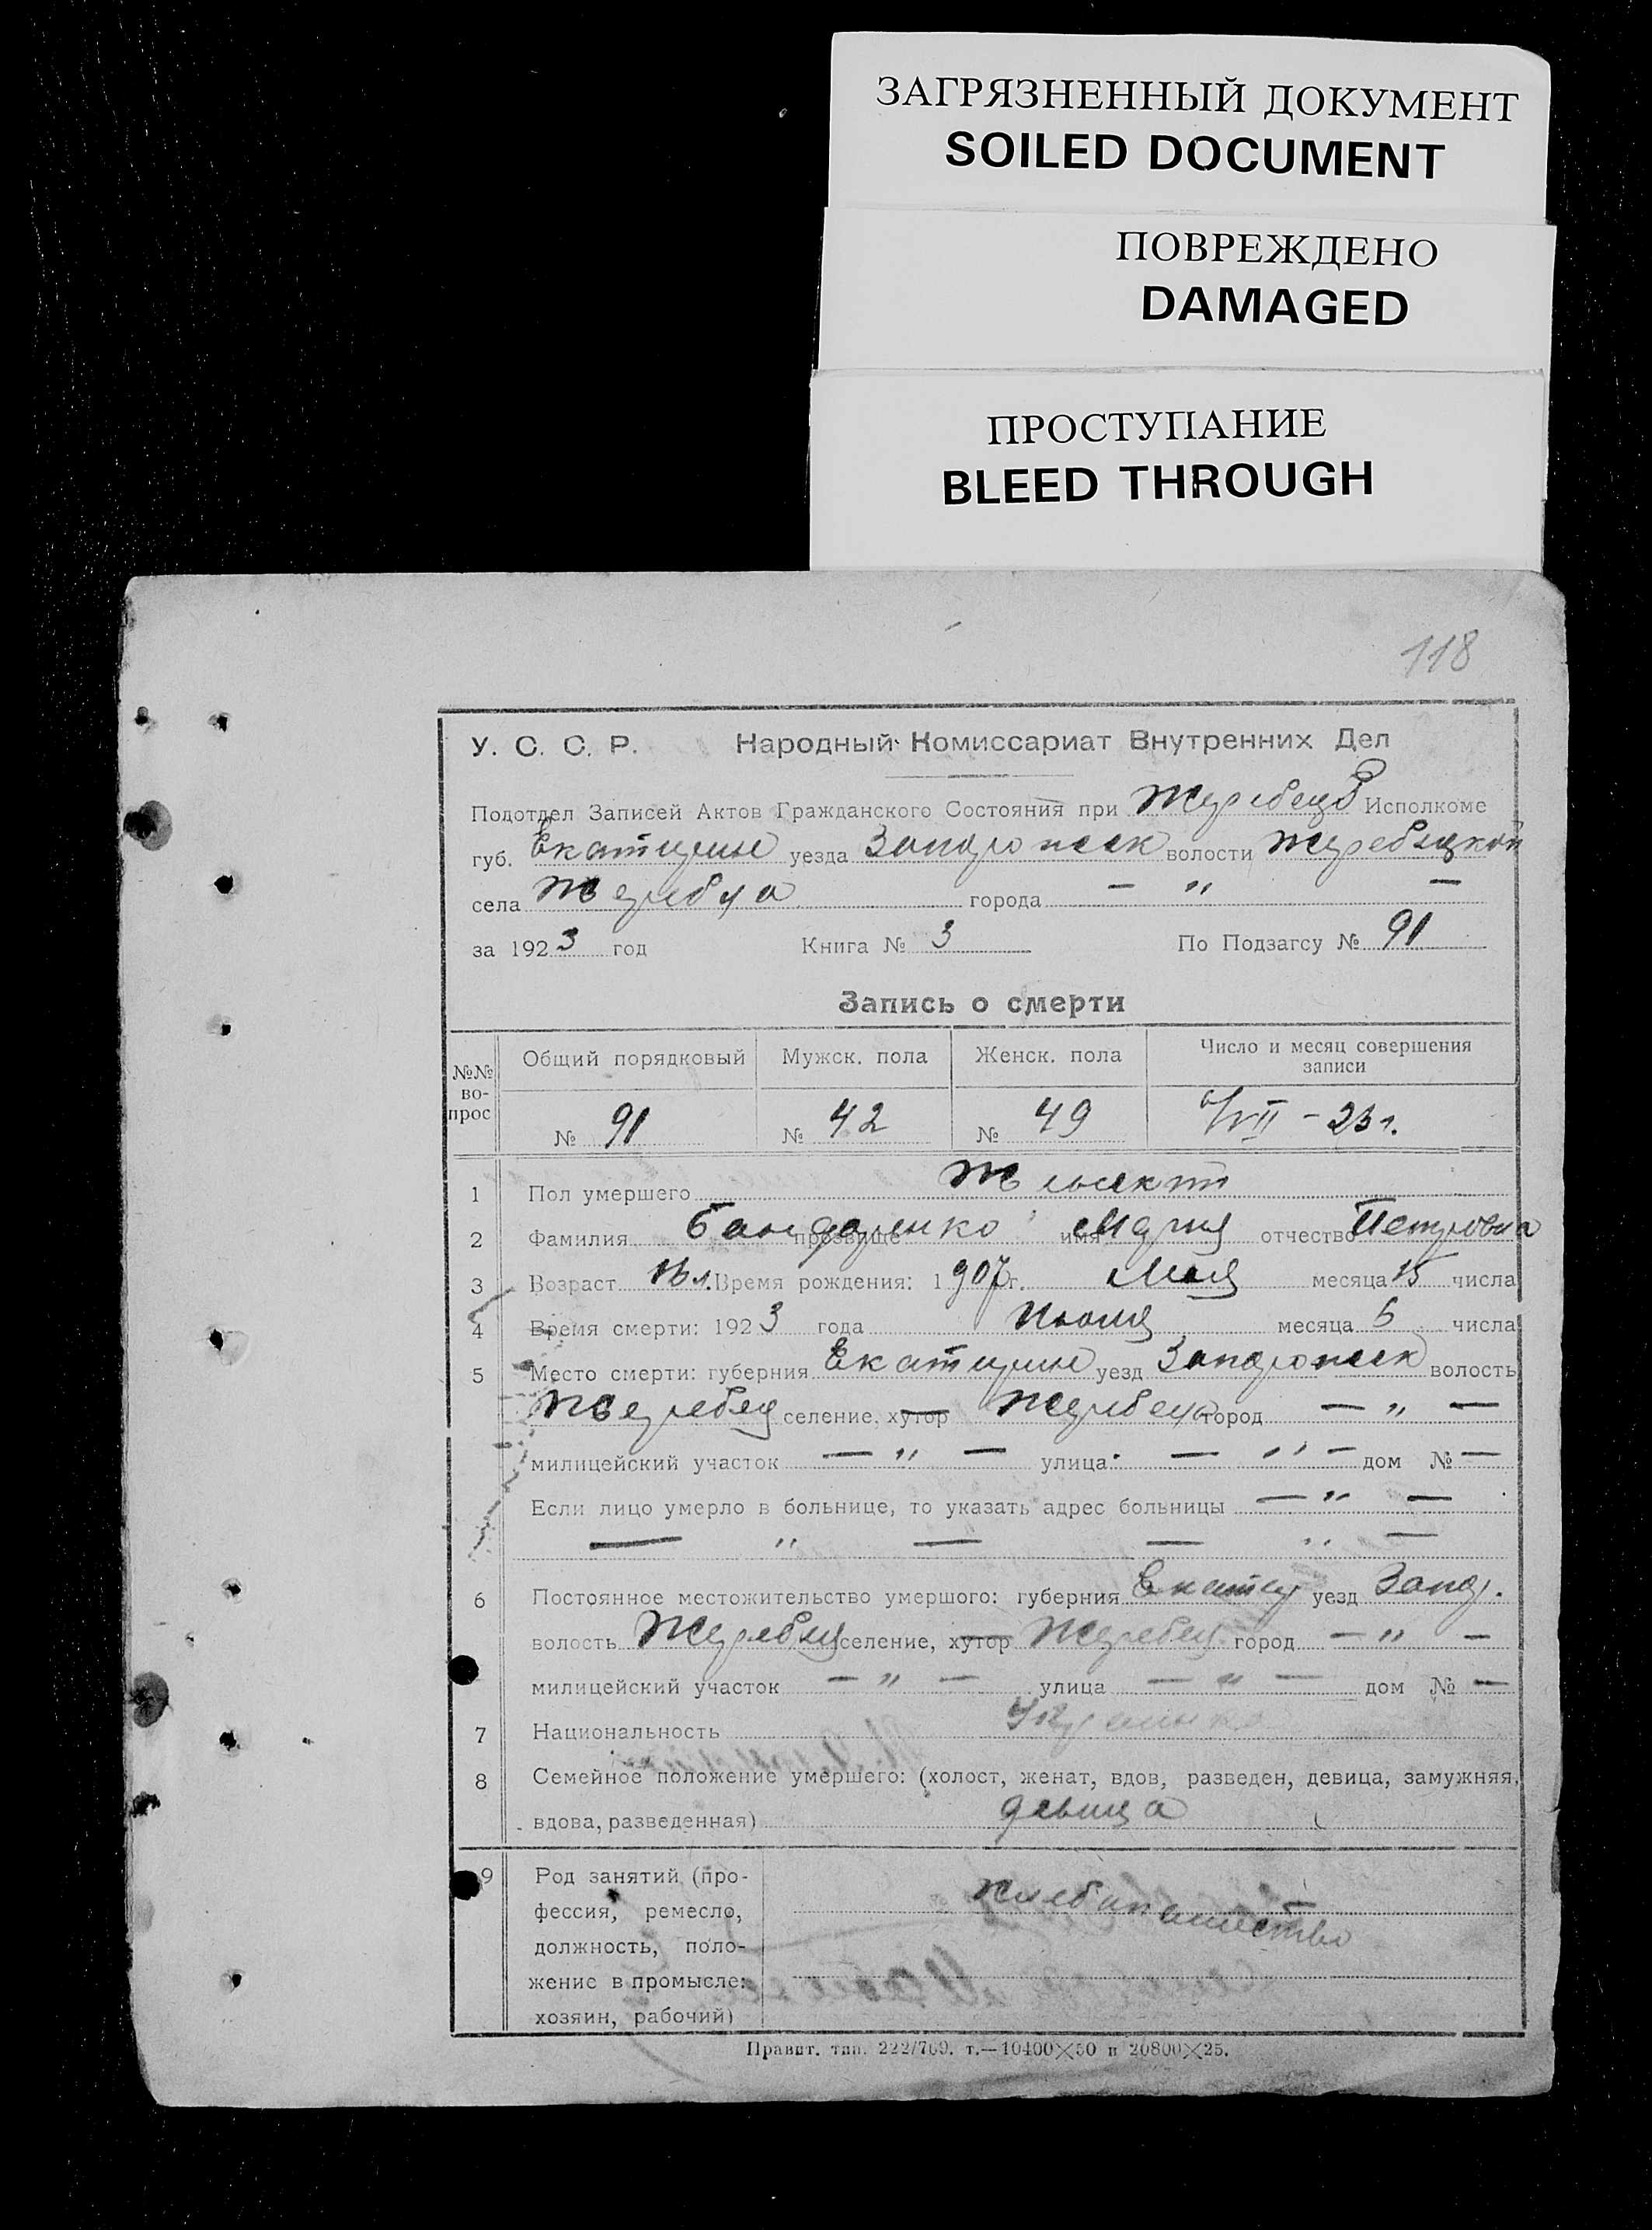 ЗАГРЯЗНЕННЫЙ ДОКУМЕНТ
SOILED DOCUMENT
ПОВРЕЖДЕНО
DAMAGED
ПРОСТУПАНИЕ
BLEED THROUGH
118
У. С. С. Р. Народный Комиссариат Внутренних Дел
Подотдел Записей Актов Гражданского Состояния при Исполкоме
губ. Екатерин уезда Запорожск волости Жеребецкой
села Жеребца города — " —
за 1923 год Книга № 3 По Подзагсу № 91
Запись о смерти
№№ во-прос Общий порядковый Мужск. пола Женск. пола Число и месяц совершения записи
№ 91 № 42 № 49 6/VII - 23 г.
1 Пол умершего Женск
2 Фамилия Бондаренко прозвище имя Мария отчество Петровна
3 Возраст 16 л. Время рождения: 1907 г. Мая месяца 15 числа
4 Время смерти: 1923 года Июля месяца 5 числа
5 Место смерти: губерния Екатерин уезд Запорожск волость
Жеребец селение, хутор Жеребец город — " —
милицейский участок — " — улица — " — дом № —
Если лицо умерло в больнице, то указать адрес больницы — " —
— " — — " —
6 Постоянное местожительство умершого: губерния Екатер уезд Запор.
волость Жеребец селение, хутор Жеребец город — " —
милицейский участок — " — улица — " — дом № —
7 Национальность Украинка
8 Семейное положение умершего: (холост, женат, вдов, разведен, девица, замужняя,
вдова, разведенная) девица
9 Род занятий (про-
фессия, ремесло, хлебопашество
должность, поло-
жение в промысле:
хозяин, рабочий)
Правит. тип. 222/769. т.—10400×50 и 20800×25.